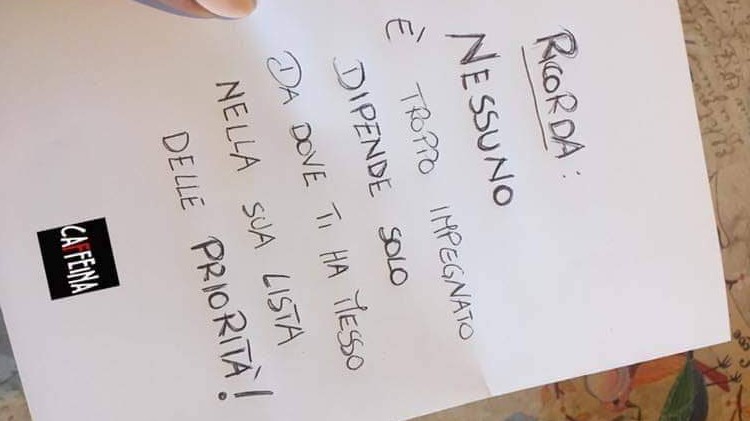 RICORDA:
NESSUNO
È TROPPO IMPEGNATO
DIPENDE SOLO
DA DOVE TI HA MESSO
NELLA SUA LISTA
DELLE PRIORITÀ!
CAFFEINA